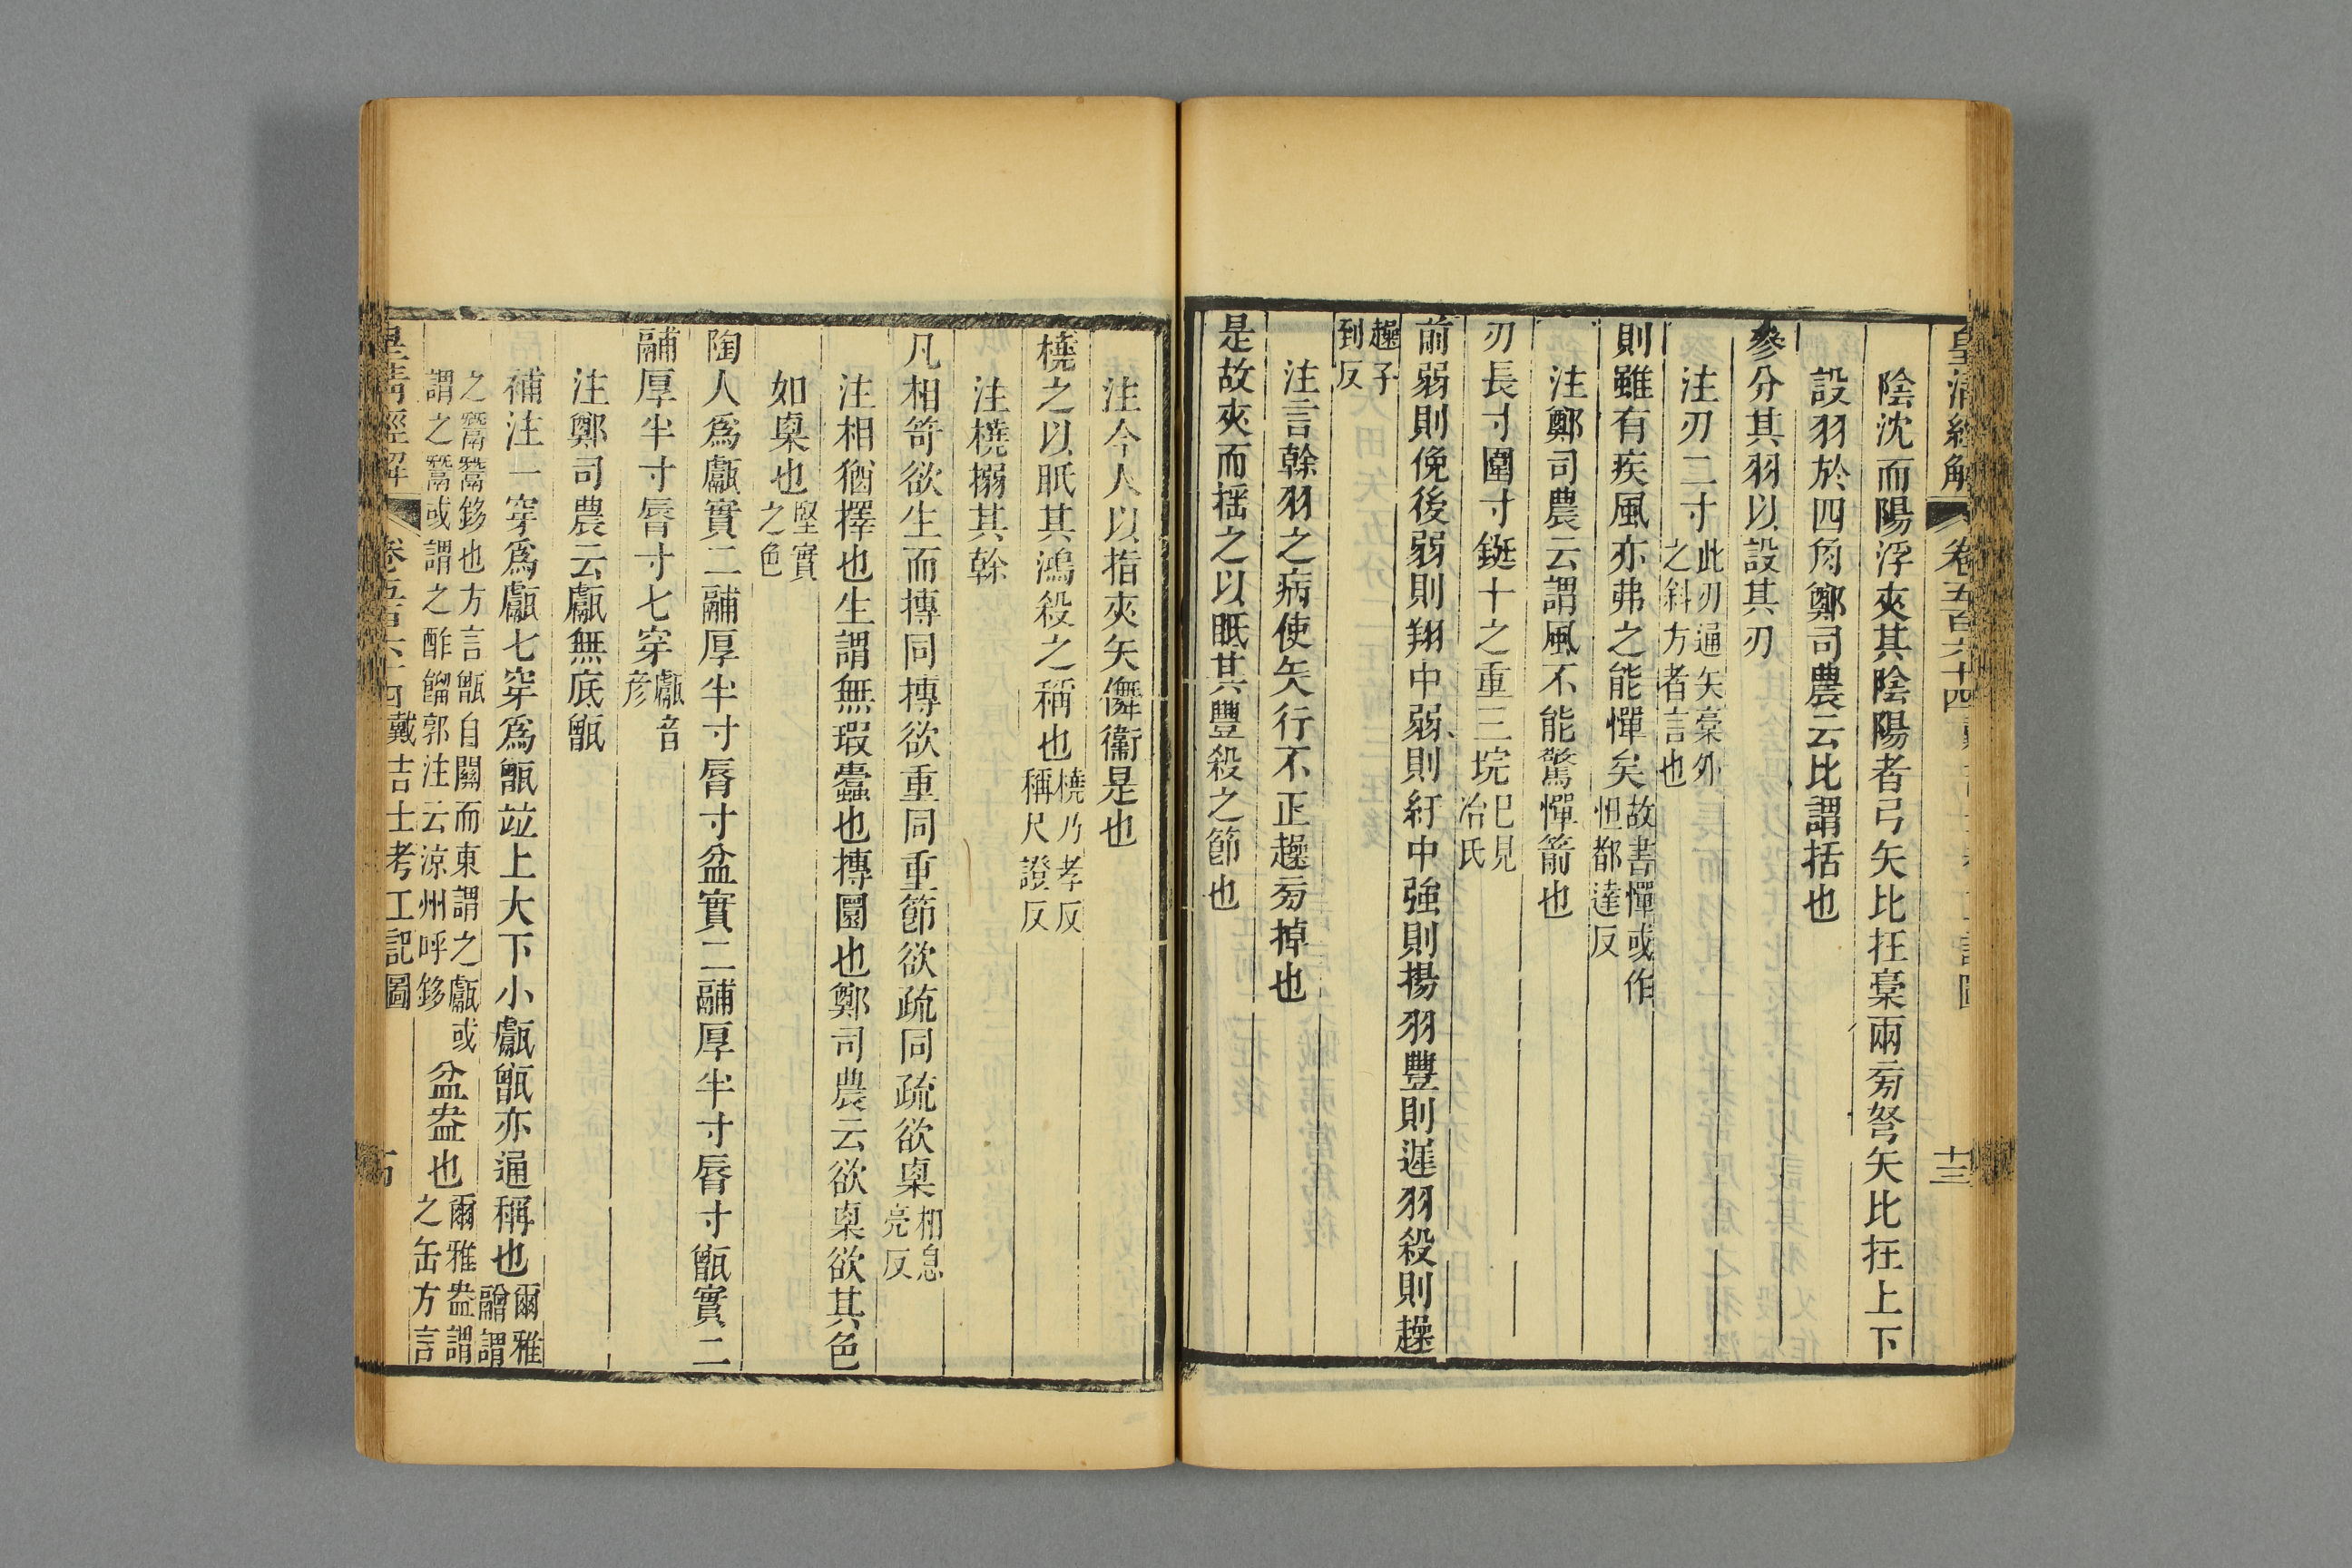 皇清經解 卷五百六十四 十三
陰沈而陽浮夾其陰陽者弓矢比在稾兩旁弩矢比在上下
設羽於四角鄭司農云比謂括也
參分其羽以設其刃
注刃二寸此刃通矢稾外之斜方者言也
則雖有疾風亦弗之能憚矣故書憚或作怛都達反
注鄭司農云謂風不能驚憚箭也
刃長寸圍寸鋌十之重三垸已見冶氏
前弱則俛後弱則翔中弱則紆中強則揚羽豐則遲羽殺則趮
趮子到反
注言榦羽之病使矢行不正趮旁掉也
是故夾而搖之以眡其豐殺之節也
注今人以指夾矢儛衞是也
橈之以眡其鴻殺之稱也橈乃孝反稱尺證反
注橈搦其榦
凡相笴欲生而摶同摶欲重同重節欲疏同疏欲㮚相息亮反
注相猶擇也生謂無瑕蠹也摶圜也鄭司農云欲㮚欲其色
如㮚也堅實之色
陶人爲甗實二鬴厚半寸脣寸盆實二鬴厚半寸脣寸甑實二
鬴厚半寸脣寸七穿甗音彦
注鄭司農云甗無底甑
補注一穿爲甗七穿爲甑竝上大下小甗甑亦通稱也爾雅䰝謂
之鬵鬵鉹也方言甑自關而東謂之甗或謂之鬵或謂之酢餾郭注云涼州呼鉹 盆盎也爾雅盎謂之缶方言
皇清經解 卷五百六十四 戴吉士考工記圖